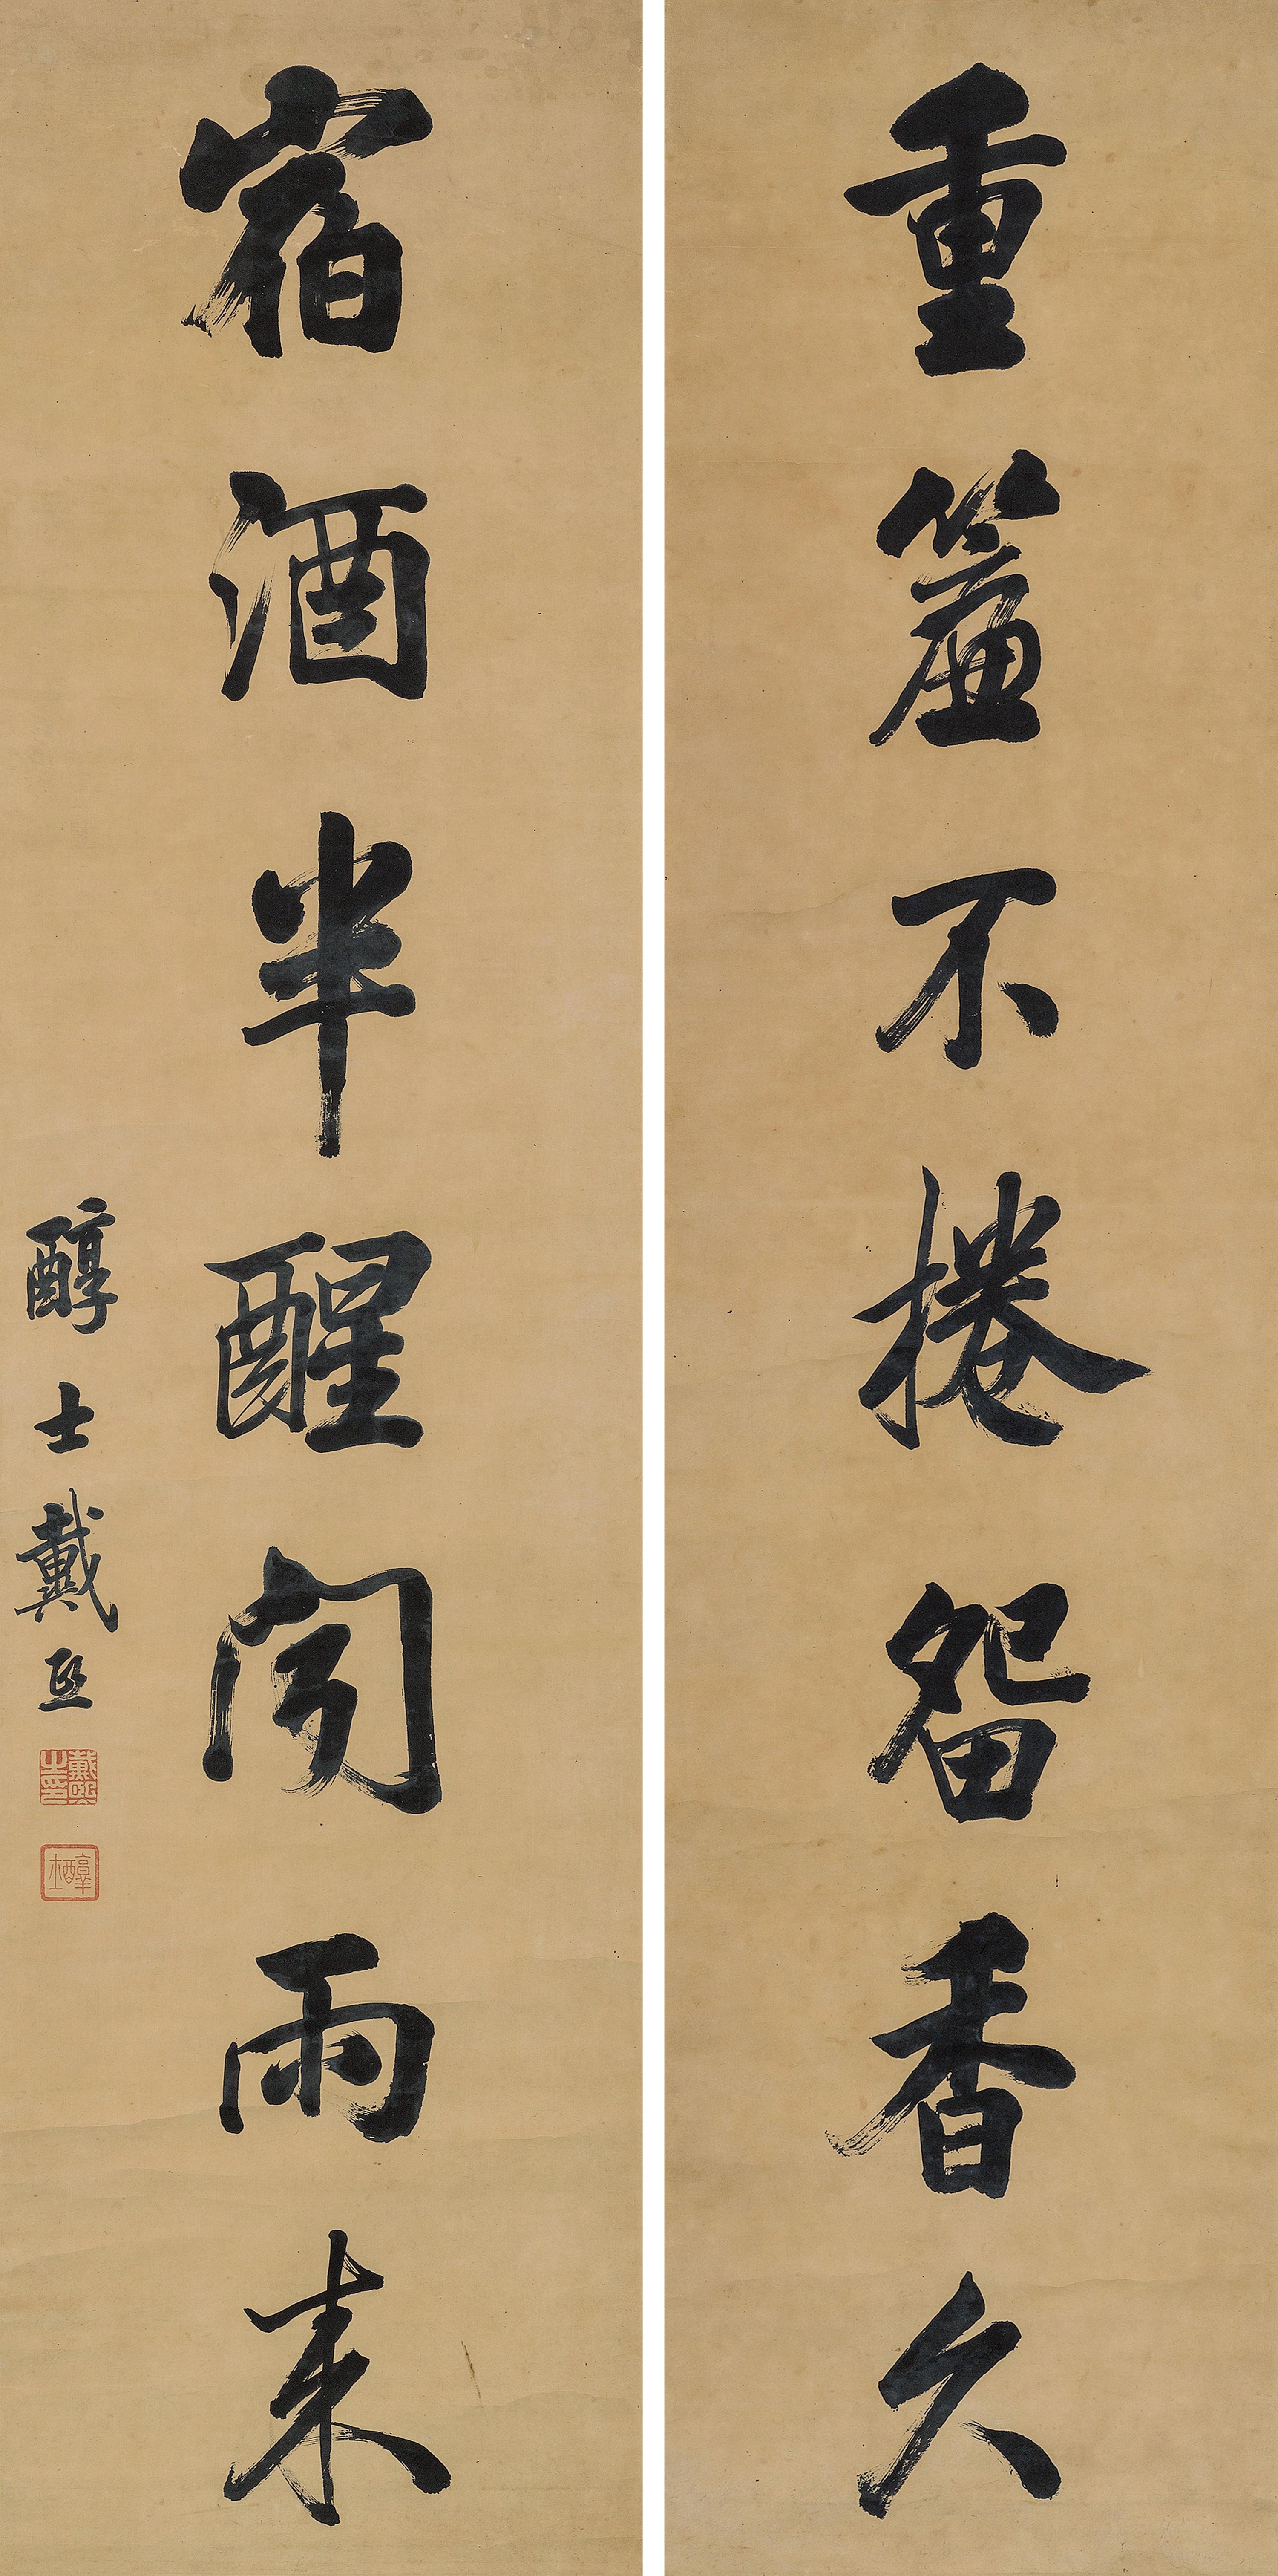 重簾不捲留香久
宿酒半醒聞雨来
醇士戴熙
戴熙之印